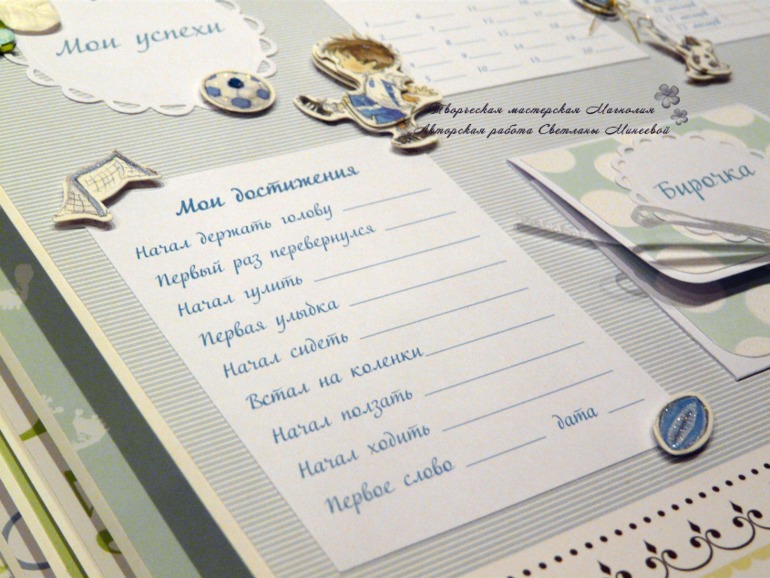 Мои успехи
Творческая мастерская Магнолия
Авторская работа Светланы Минеевой
Бирочка
Мои достижения
Начал держать голову
Первый раз перевернулся
Начал гулить
Первая улыбка
Начал сидеть
Встал на коленки
Начал ползать
Начал ходить
Первое слово дата